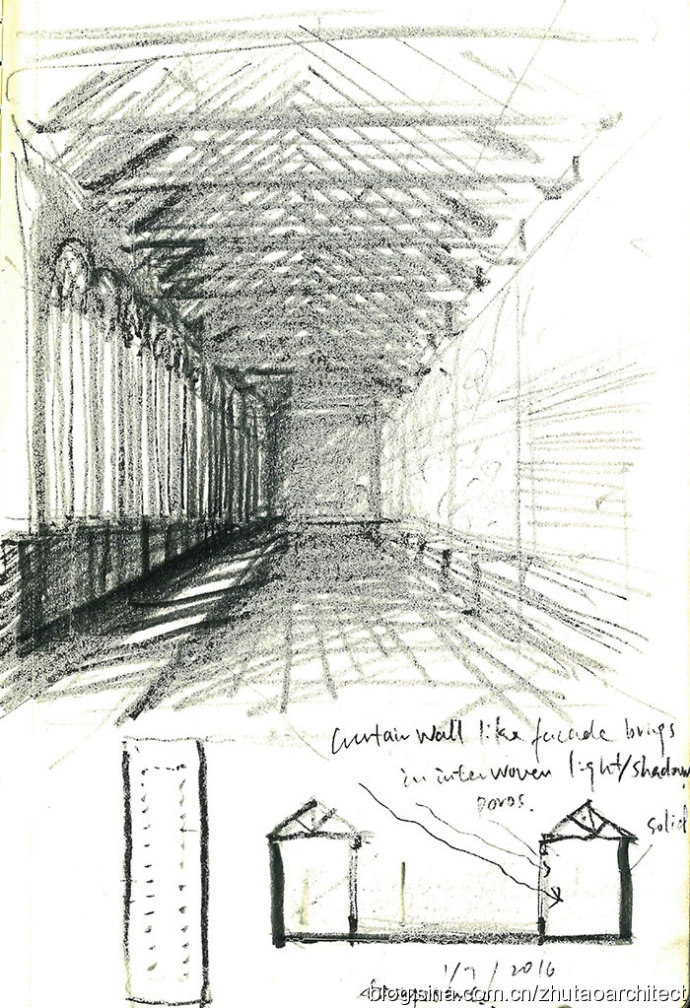 curtain wall like facade brings
in interwoven light/shadow
poros.
solid
1/7/2016
blog.sina.com.cn/zhutaoarchitect